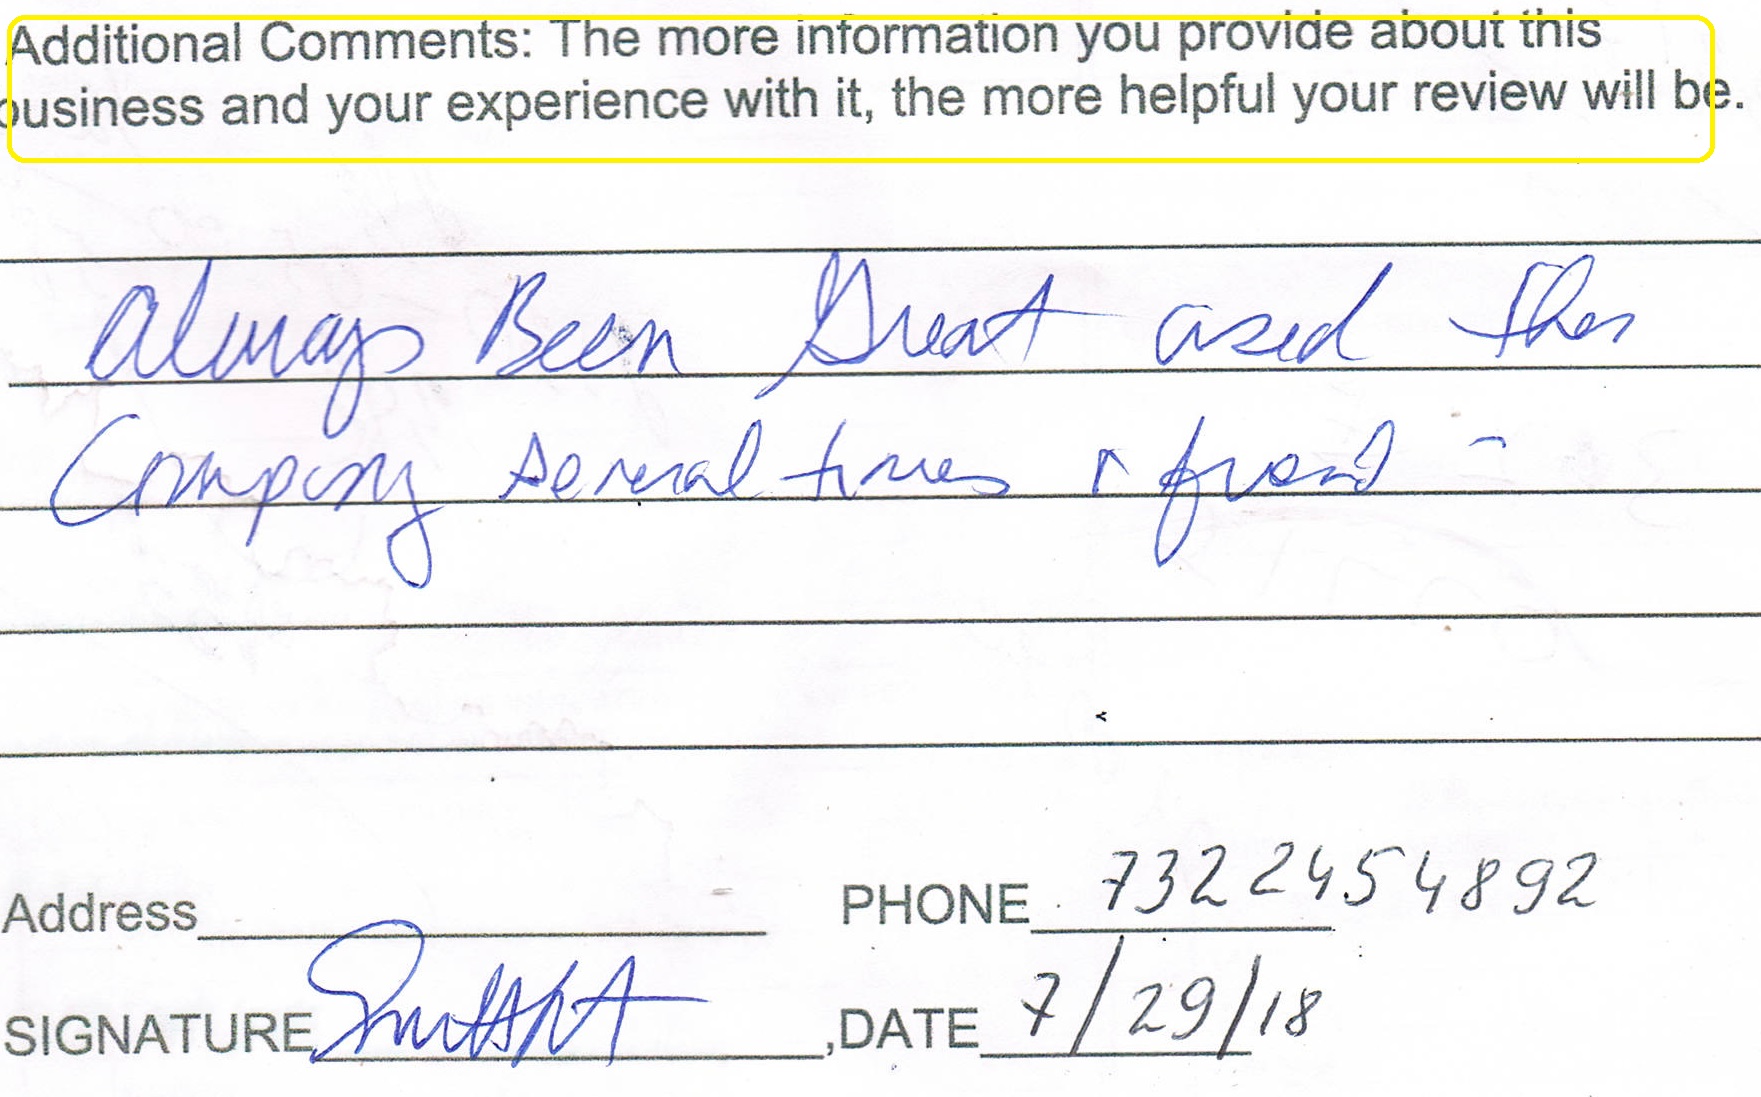 Additional Comments: The more information you provide about this
business and your experience with it, the more helpful your review will be.
Always Been Great used this
Company several times
Address PHONE 7322454892
SIGNATURE ,DATE 7/29/18